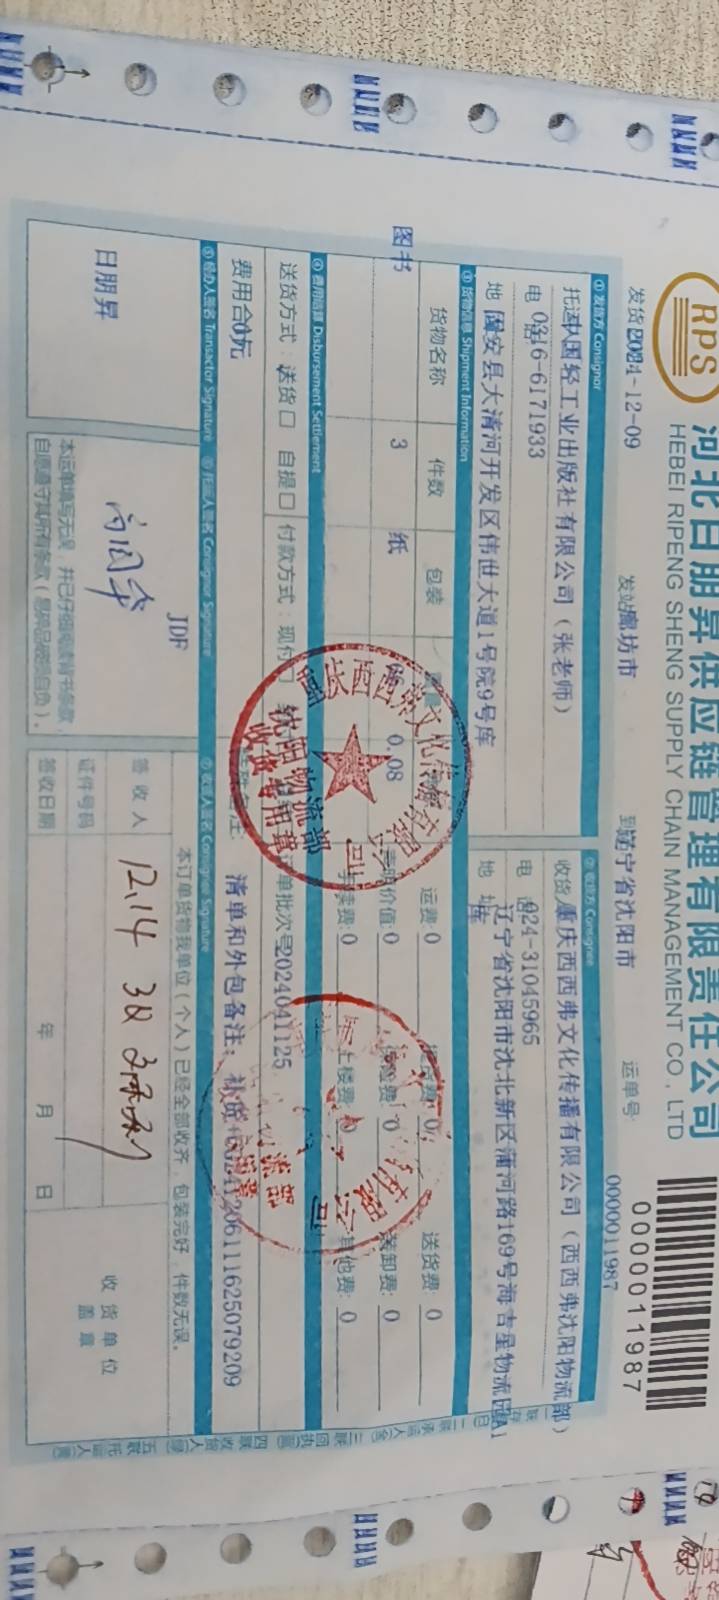 RPS
河北日朋昇供应链管理有限责任公司
HEBEI RIPENG SHENG SUPPLY CHAIN MANAGEMENT CO., LTD
0000011987
发货 2024-12-09 发站 廊坊市 到 辽宁省沈阳市 运单号 0000011987
① 发货方 Consignor ② 收货方 Consignee
托运 中国轻工业出版社有限公司（张老师） 收货人 重庆西西弗文化传播有限公司（西西弗沈阳物流部）
电话 0316-6171933 电话 024-31045965
地 固安县大清河开发区伟世大道1号院9号库 地址 辽宁省沈阳市沈北新区蒲河路169号海吉星物流园A1库
③ 货物信息 Shipment Information
货物名称 件数 包装 运费: 0 送货费: 0
图书 3 纸 0.08 声明价值: 0 0 装卸费: 0
0 上楼费: 0 其他费: 0
④ 费用结算 Disbursement Settlement
送货方式: 送货□ 自提□ 付款方式: 现付□ 订单批次号 2024041125
费用合 0元 备注: 清单和外包备注: 补货
⑤ 经办人签名 Transactor Signature ⑥ 托运人签名 Consignor Signature ⑦ 收货人签名 Consignee Signature
日朋昇
JDF
本运单填写无误，并已仔细阅读背书条款，
自愿遵守其所有条款（易碎品破损自负）。
本订单货物我单位（个人）已经全部收齐，包装完好，件数无误。
签收人 12.14
证件号码
签收日期 年 月 日
收货单位
盖章
重庆西西弗文化传播有限公司
沈阳物流部
收货专用章